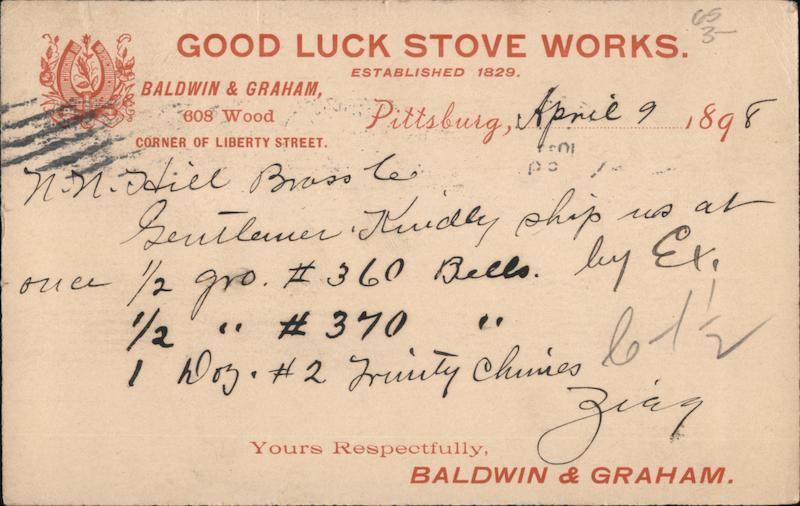 GOOD LUCK STOVE WORKS.
ESTABLISHED 1829.
BALDWIN & GRAHAM,
608 Wood
CORNER OF LIBERTY STREET.
Pittsburg, April 9 1898
N. N. Hill Brass Co
Gentlemen. Kindly ship us at
once 1/2 gro. # 360 Bells. by Ex.
1/2 " # 370 "
1 Doz. # 2 Trinity Chimes
Yours Respectfully,
BALDWIN & GRAHAM.